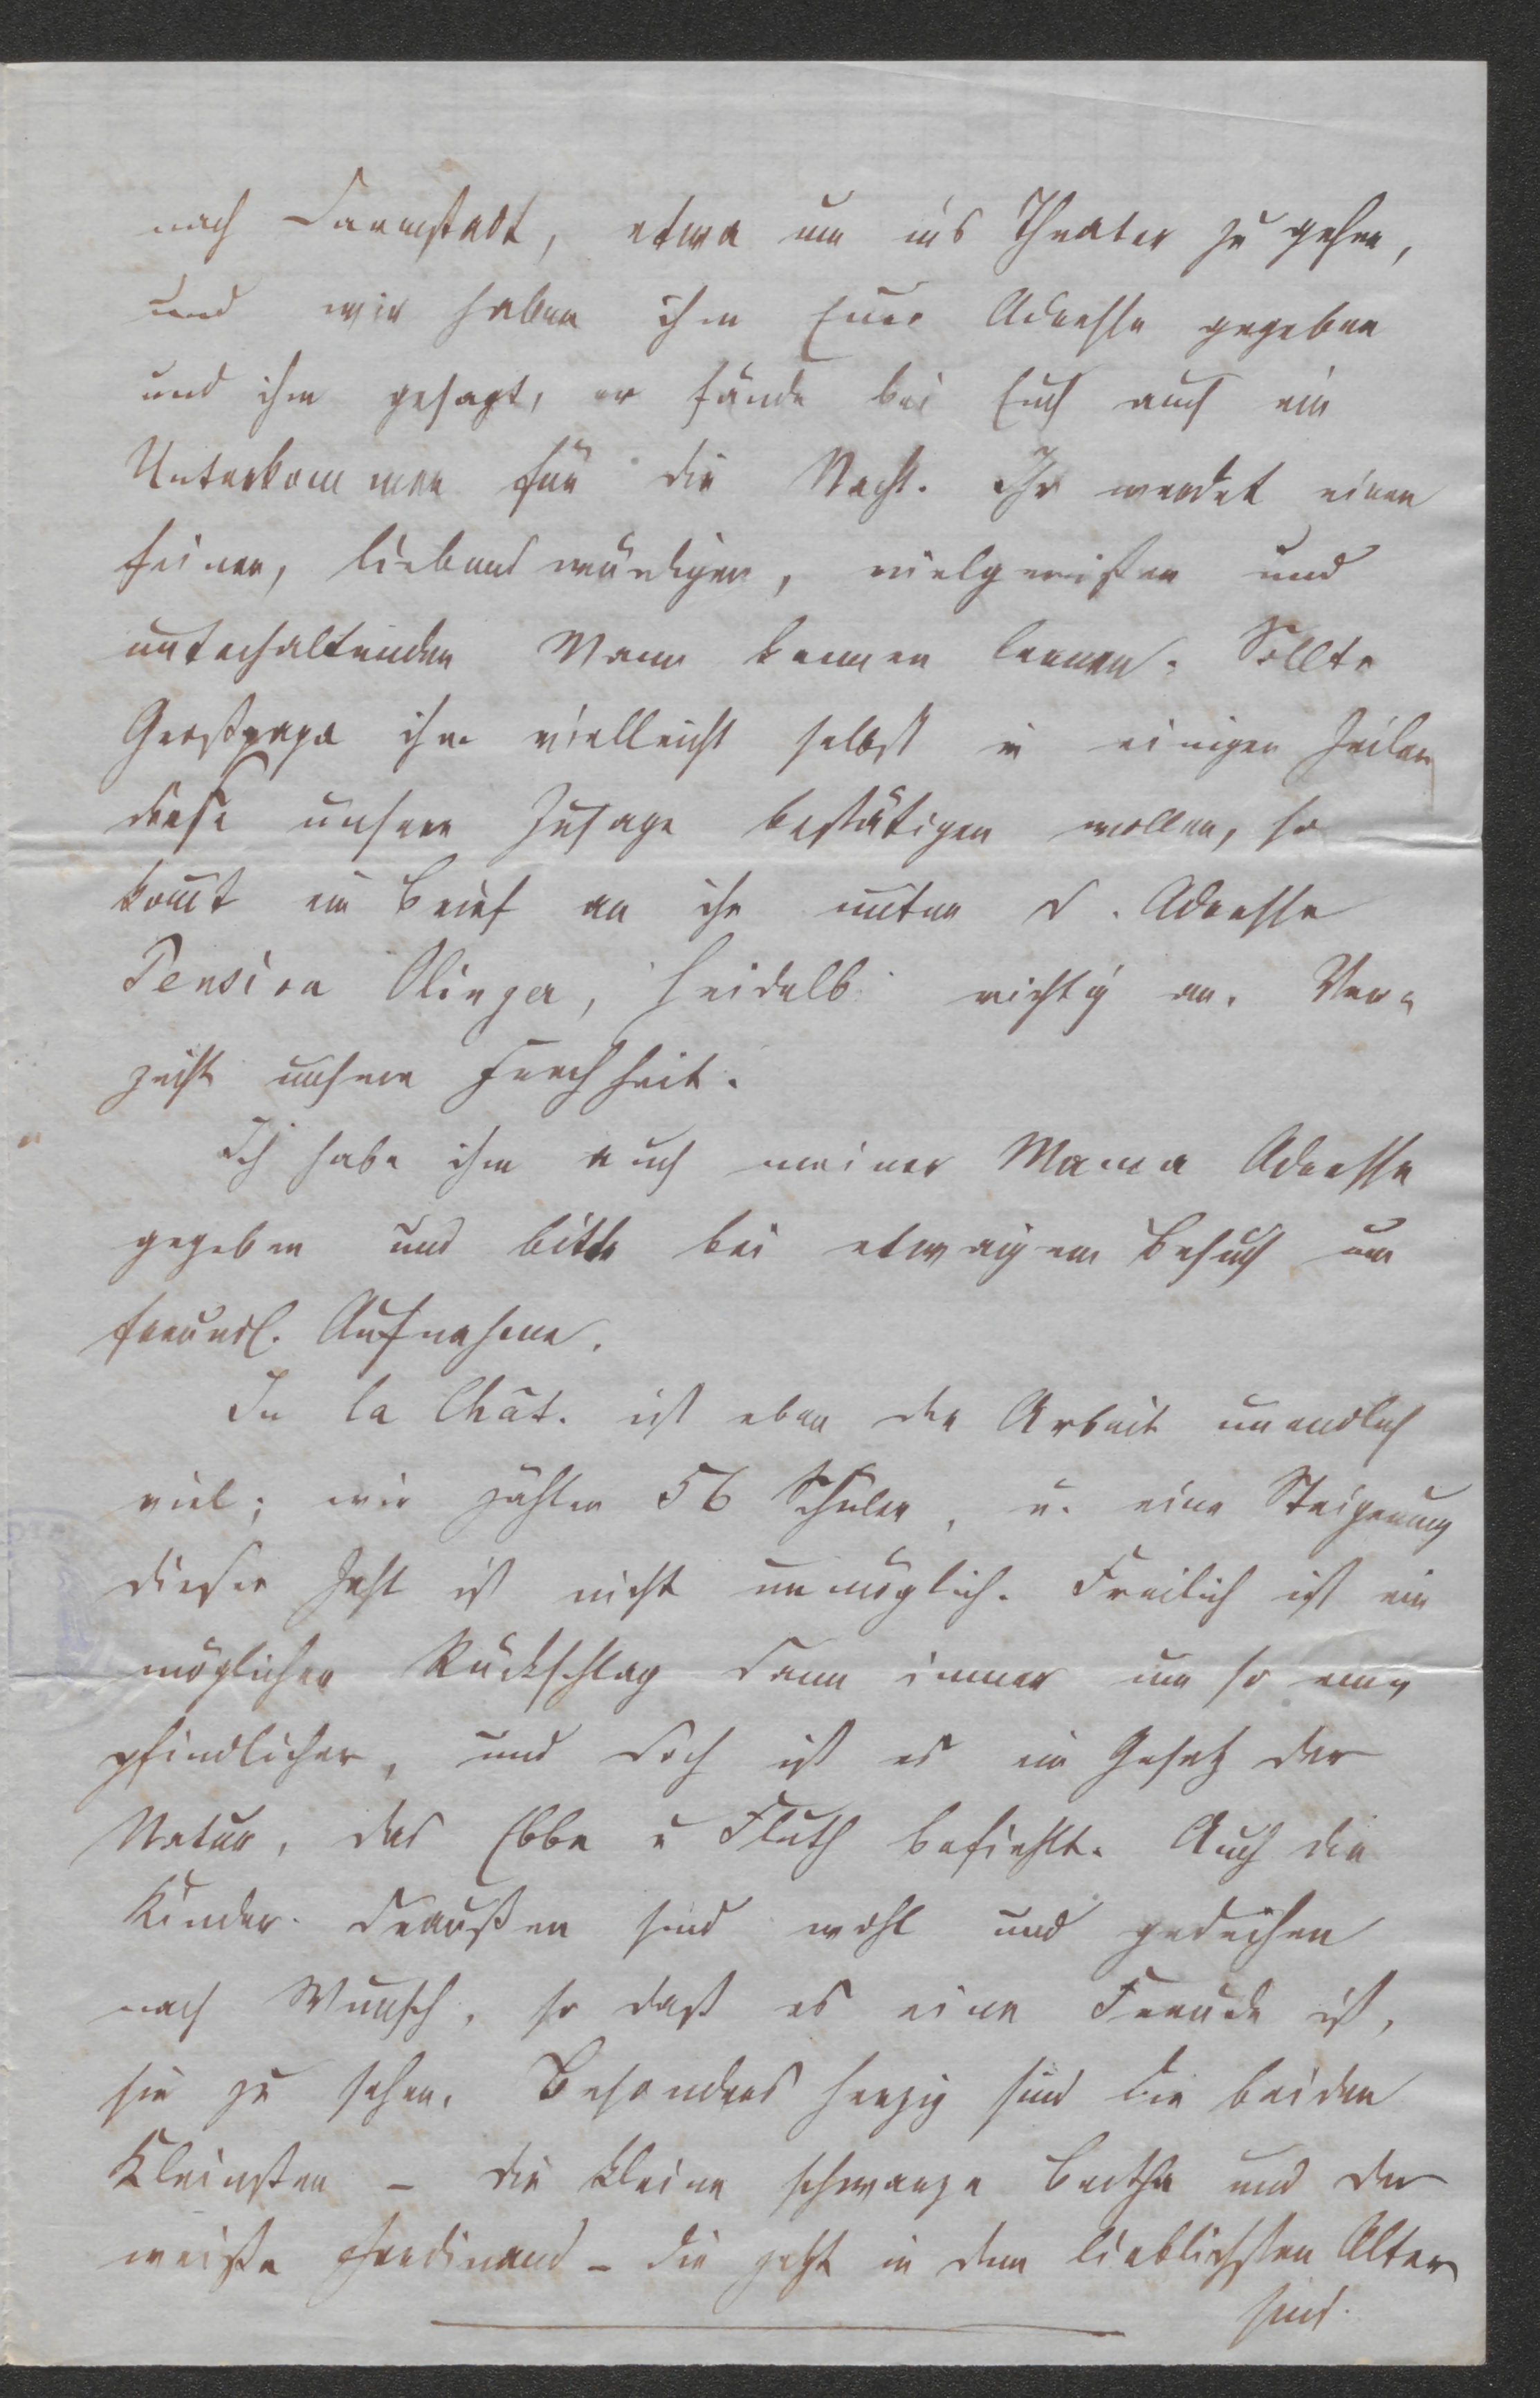 nach Darmstadt, etwa um in's Theater zu gehen,
und wir haben ihm Eure Adresse gegeben
und ihm gesagt, er fände bei Euch auch ein
Unterkommen für die Nacht. Ihr werdet einen
feinen, liebenswürdigen, vielgereisten und
unterhaltenden Mann kennen lernen. Sollte
Großpapa ihm vielleicht selbst in einigen Zeilen
diese unsere Zusage bestätigen wollen, so
kom̄t ein Brief an ihn unter d. Adresse
Pension Olinger, Heidelb. richtig an. Ver-
zeiht unsere Frechheit.
Ich habe ihm auch meiner Mama Adresse
gegeben und bitte bei etwaigem Besuch um
freundl. Aufnahme.
In la Chât. ist eben der Arbeit unendlich
viel; wir zählen 56 Schüler, u. eine Steigerung
dieser Zahl ist nicht unmöglich. Freilich ist ein
möglicher Rückschlag dann immer um so em-
pfindlicher, und doch ist es ein Gesetz der
Natur, das Ebbe u Fluth befiehlt. Auch die
Kinder draußen sind wohl und gedeihen
nach Wunsch, so daß es eine Freude ist,
sie zu sehen. Besonders herzig sind die beiden
Kleinsten – die kleine schwarze Bertha und der
weiße Ferdinand – die jetzt in dem lieblichsten Alter
sind.